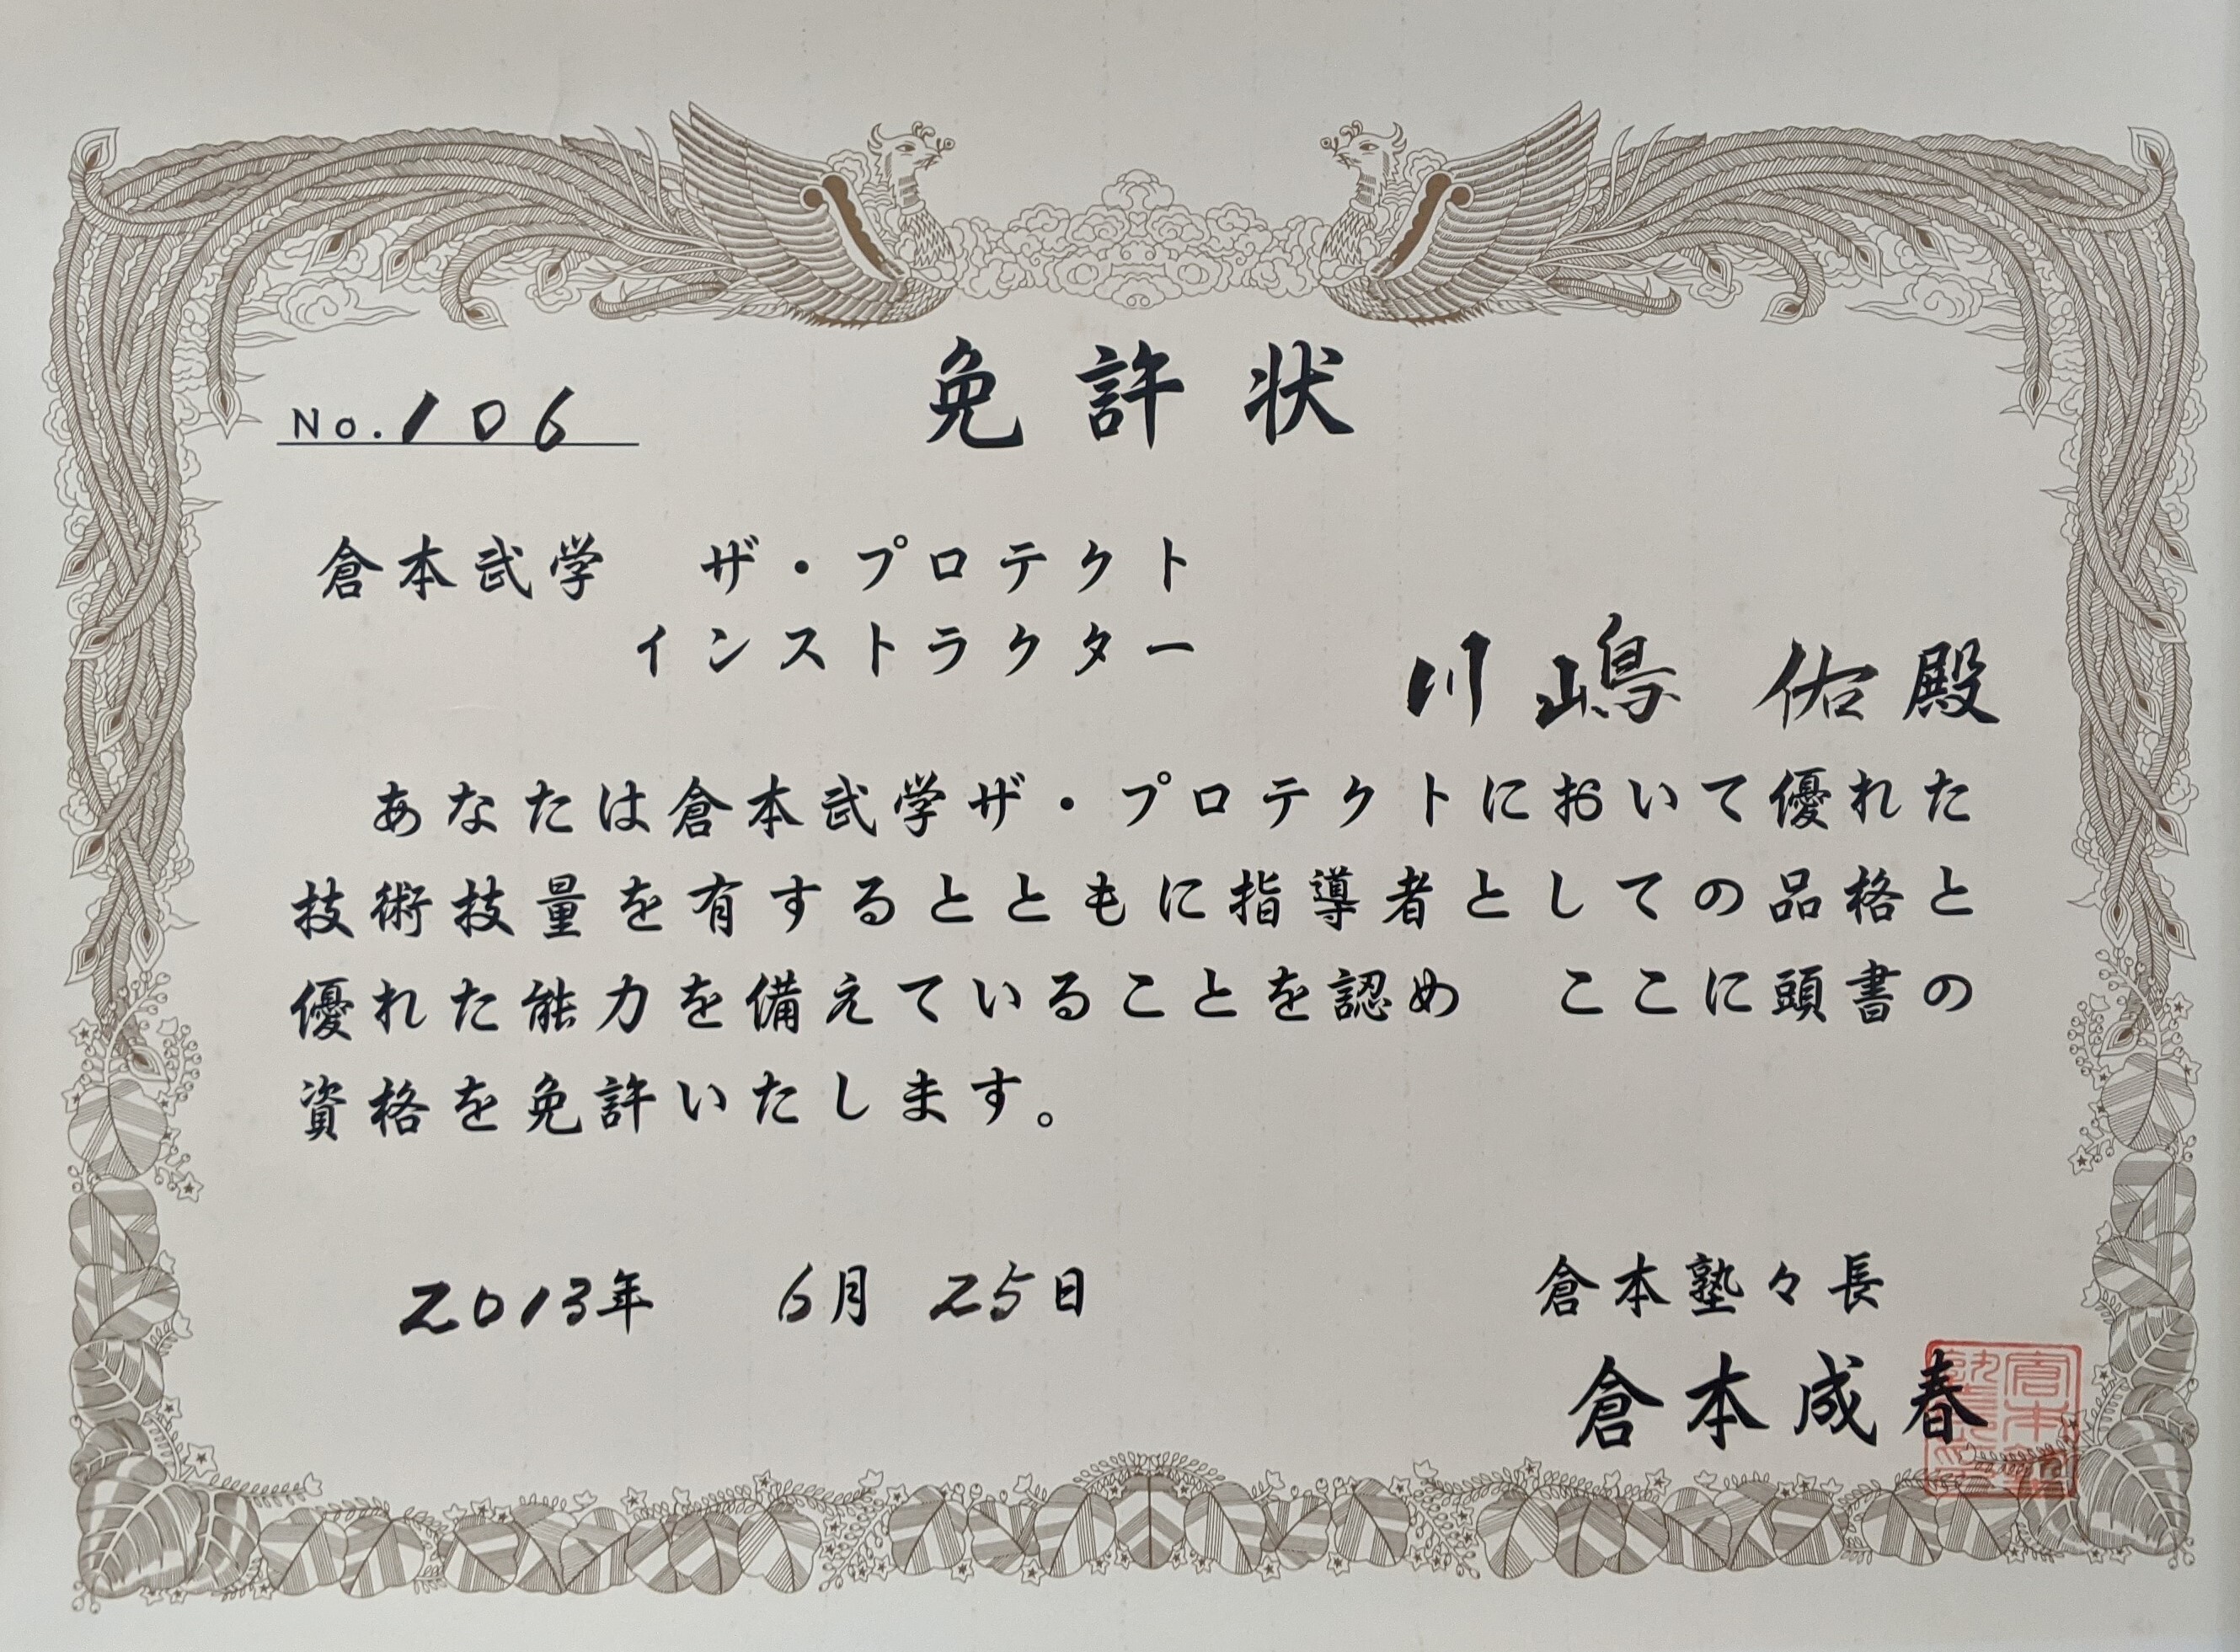 免許状
No.106
倉本武学 ザ・プロテクト
インストラクター
川嶋 佑殿
あなたは倉本武学ザ・プロテクトにおいて優れた
技術技量を有するとともに指導者としての品格と
優れた能力を備えていることを認め ここに頭書の
資格を免許いたします。
2013年 6月 25日
倉本塾々長
倉本成春